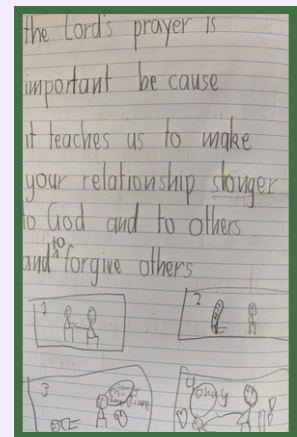 the Lord's prayer is
important be cause
it teaches us to make
your relationship stonger
to God and to others
and to forgive others
1
2
3
4
okay